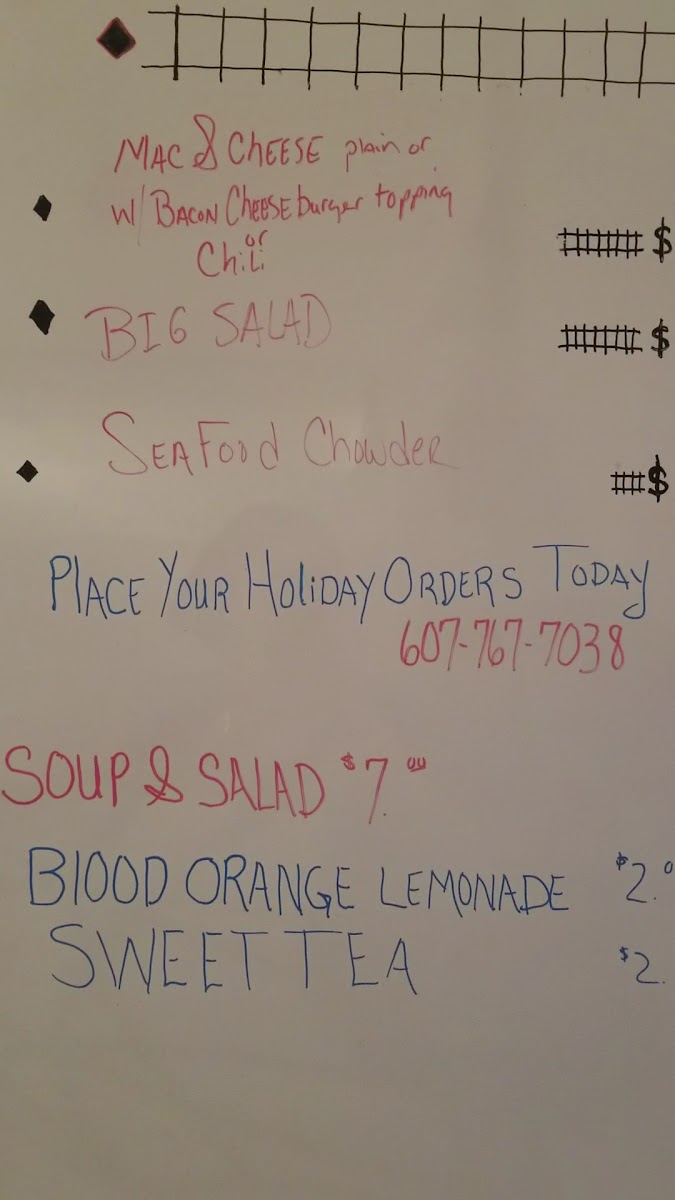 MAC & CHEESE plain or
W/ BACON CHEESE burger topping
or
Chili
$
BIG SALAD $
SEAFOOD Chowder $
PLACE YOUR HOLIDAY ORDERS TODAY
607-767-7038
SOUP & SALAD $7.00
BLOOD ORANGE LEMONADE $2.0
SWEET TEA $2.